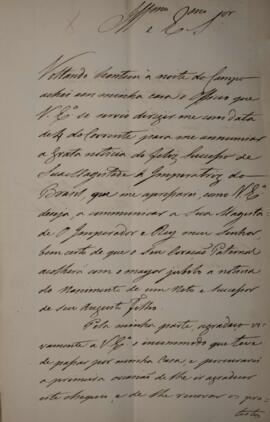 Illmo. e Exmo. Snr.
Voltando hontem à noite do Campo
achei em minha casa o Officio que
V. Exa. se servio dirigir-me com data
de 4 do Corrente para me annunciar
a grata noticia do feliz Successo de
Sua Magestade a Imperatriz do
Brasil, que me apressarei, como V. Exa.
deseja, a communicar a Sua Magesta-
de O Imperador e Rey meu Senhor,
bem certo de que o Seu Coração Paternal
acolherá com o maior jubilo a noticia
do Nascimento de um Neto e Successor
de seu Augusto Filho.
Pela minha parte, agradeço vi-
vamente a V. Exa. o incommodo que teve
de passar por minha Casa, e procurarei
a primeira occasião de lhe agradecer
este obsequio, e de lhe renovar os pro-
testos